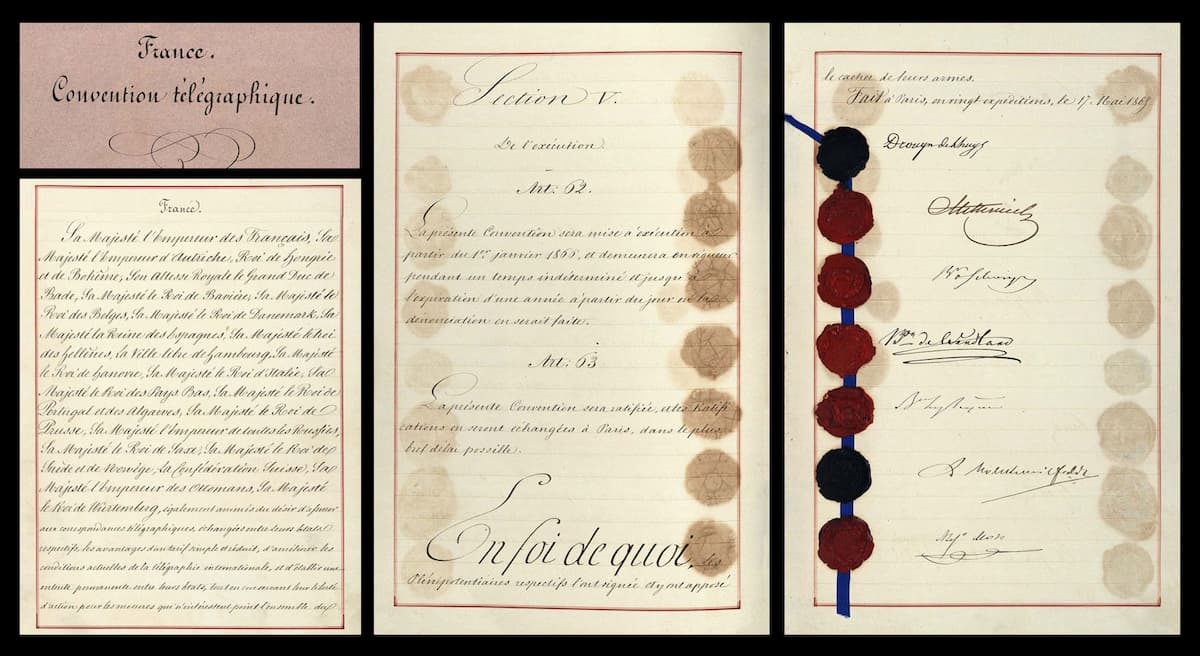 France.
Convention télégraphique.
France.
Sa Majesté l'Empereur des Français, Sa
Majesté l'Empereur d'Autriche, Roi de Hongrie
et de Bohême, Son Altesse Royale le Grand Duc de
Bade, Sa Majesté le Roi de Bavière, Sa Majesté le
Roi des Belges, Sa Majesté le Roi de Danemark, Sa
Majesté la Reine des Espagnes, Sa Majesté le Roi
des Hellènes, la Ville libre de Hambourg, Sa Majesté
le Roi de Hanovre, Sa Majesté le Roi d'Italie, Sa
Majesté le Roi des Pays Bas, Sa Majesté le Roi de
Portugal et des Algarves, Sa Majesté le Roi de
Prusse, Sa Majesté l'Empereur de toutes les Russies,
Sa Majesté le Roi de Saxe, Sa Majesté le Roi de
Suède et de Norwège, La Confédération Suisse, Sa
Majesté l'Empereur des Ottomans, Sa Majesté
le Roi de Würtemberg, également animés du désir d'assurer
aux correspondances télégraphiques, échangées entre leurs états
respectifs, les avantages d'un tarif simple et réduit, d'améliorer les
conditions actuelles de la télégraphie internationale, et d'établir une
entente permanente entre leurs états, tout en conservant leur liberté
d'action pour les mesures qui n'intéressent point l'ensemble du
Section V.
De l'exécution.
Art: 62.
La présente Convention sera mise à exécution à
partir du 1er janvier 1866, et demeurera en vigueur
pendant un temps indéterminé et jusqu'à
l'expiration d'une année à partir du jour où la
dénonciation en serait faite.
Art: 63
La présente Convention sera ratifiée, et les Ratifi
cations en seront échangées à Paris, dans le plus
bref délai possible.
En foi de quoi, les
Plénipotentiaires respectifs l'ont signée et y ont apposé
le cachet de leurs armes.
Fait à Paris, en vingt expéditions, le 17 Mai 1865
Drouyn de Lhuys
Metternich
Bon de Wendland